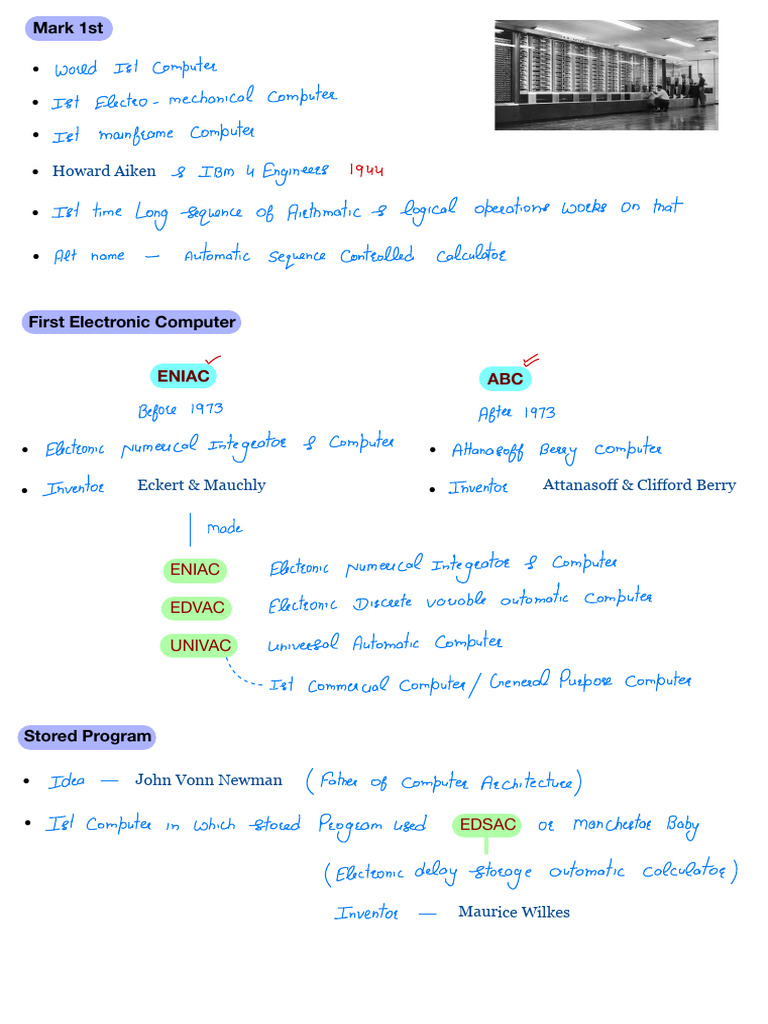 Mark 1st
• World Ist Computer
• Ist Electro-mechanical Computer
• Ist mainframe Computer
• Howard Aiken & IBM 4 Engineers 1944
• Ist time Long sequence of Airthmatic & logical operations works on that
• Alt name — Automatic Sequence Controlled Calculator
First Electronic Computer
ENIAC
ABC
Before 1973
After 1973
• Electronic Numerical Integrator & Computer
• Attanasoff Berry Computer
• Inventor Eckert & Mauchly
• Inventor Attanasoff & Clifford Berry
made
ENIAC Electronic Numerical Integrator & Computer
EDVAC Electronic Discrete varable automatic Computer
UNIVAC Universal Automatic Computer
Ist Commercial Computer / General Purpose Computer
Stored Program
• Idea — John Vonn Newman (Father of Computer Architecture)
• Ist Computer in which stored Program used EDSAC or Manchester Baby
(Electronic delay storage automatic calculator)
Inventor — Maurice Wilkes